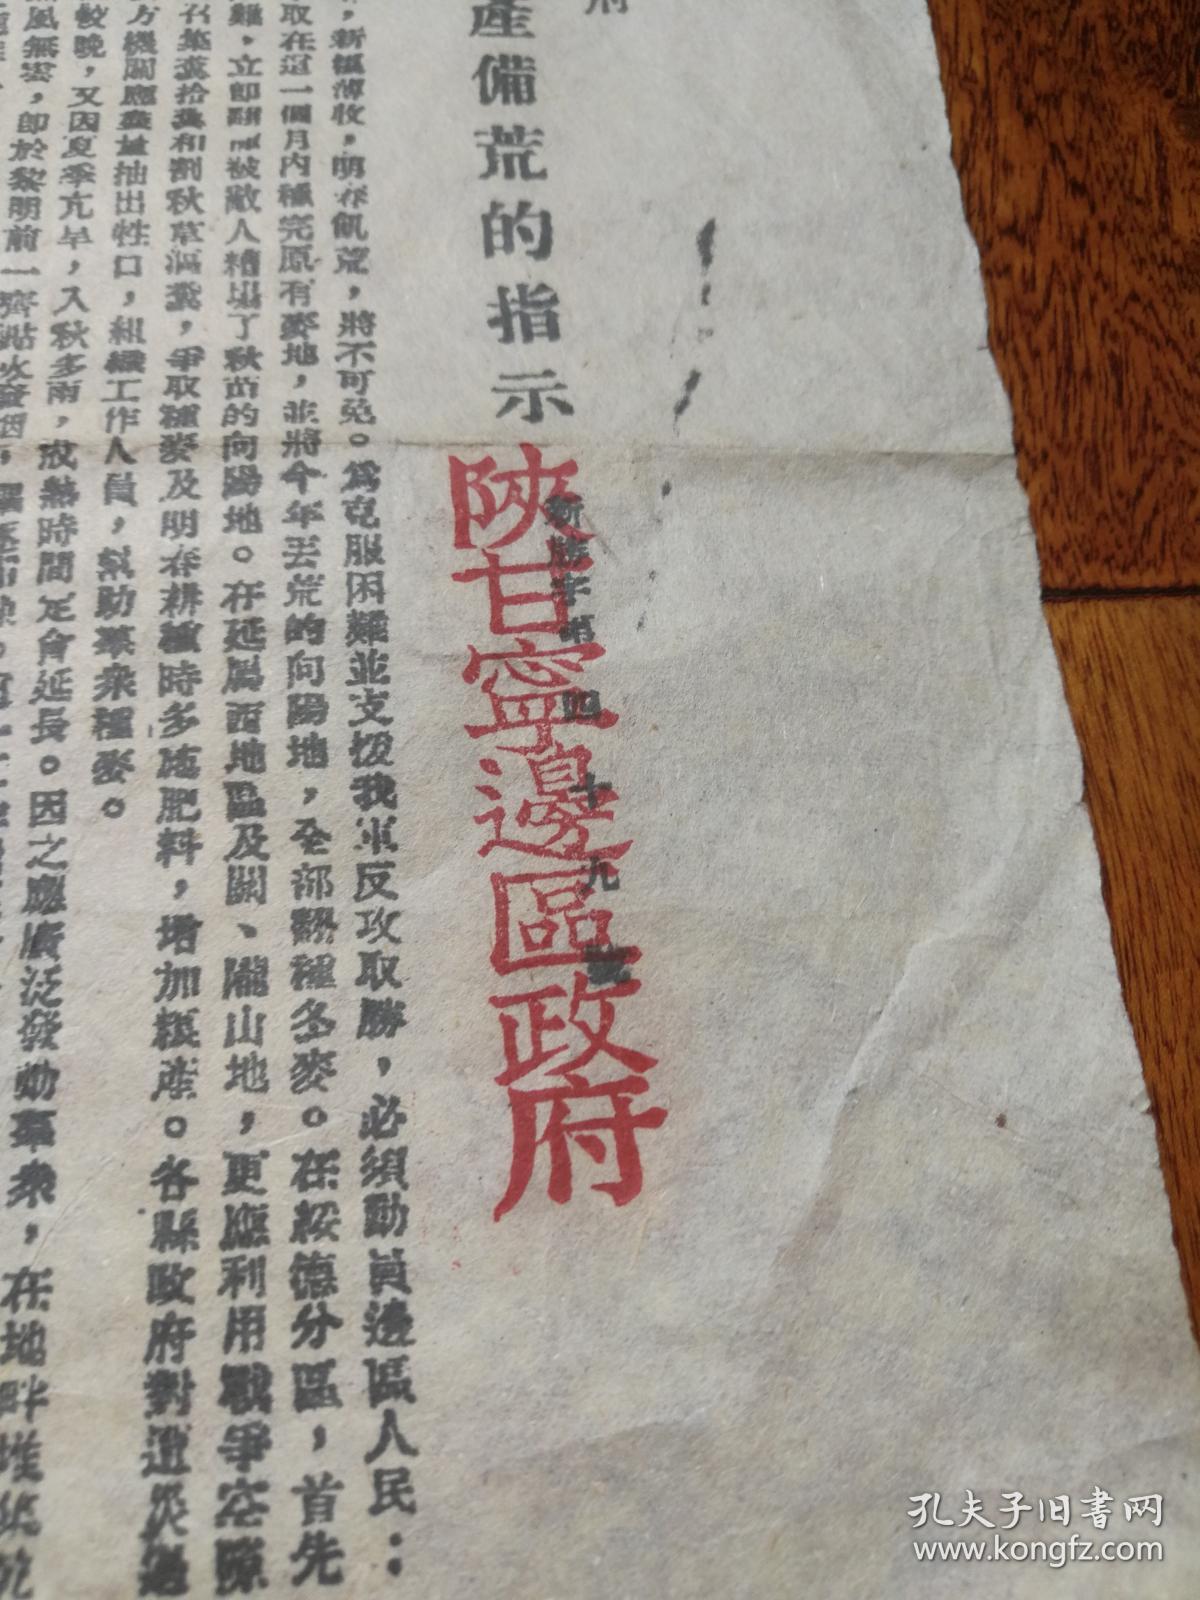 府
產備荒的指示
陝甘寧邊區政府
新勝字第四十九號
新糧薄收，明春飢荒，將不可免。為克服困難並支援我軍反攻取勝，必須動員邊區人民：
取在這一個月內種完原有麥地，並將今年丟荒的向陽地，全部翻種冬麥。在綏德分區，首先
難，立即翻耕被敵人糟塌了秋苗的向陽地。在延屬西地區及關、隴山地，更應利用戰爭空隙
召集糞拾糞和割秋草漚糞，爭取種麥及明春耕種時多施肥料，增加糧產。各縣政府對遭災過
方機關應盡量抽出牲口，組織工作人員，幫助羣衆種麥。
較晚，又因夏季亢旱，入秋多雨，成熟時間定會延長。因之應廣泛發動羣衆，在地畔堆柴
風無雲，即於黎明前一齊點火發烟，
孔夫子旧书网
www.kongfz.com